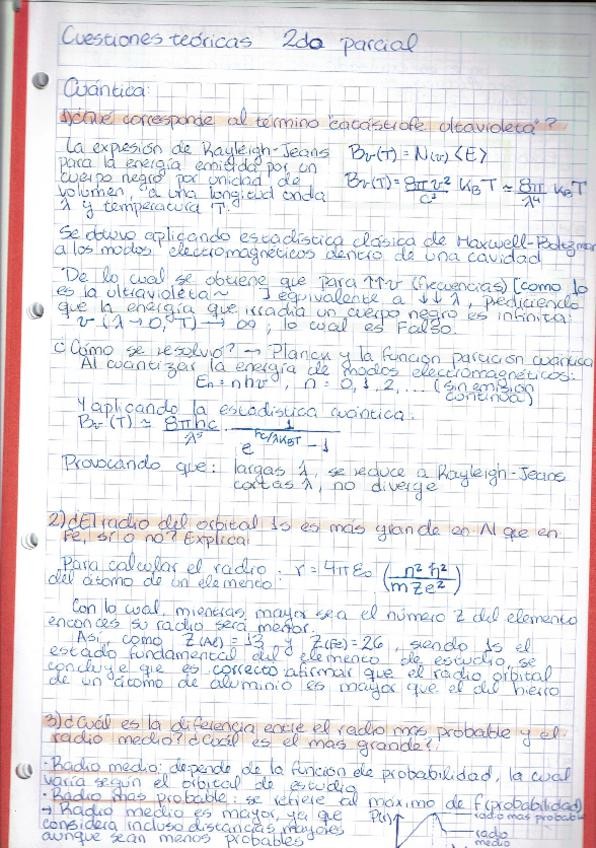 Cuestiones teóricas 2do parcial
Cuántica:
1) ¿Qué corresponde al término "catástrofe ultravioleta"?
La expresión de Rayleigh-Jeans Bν(T) = N(ν) <E>
para la energía emitida por un
cuerpo negro por unidad de Bν(T) = 8πν²/c³ KBT ≃ 8π/λ⁴ KBT
volumen, a una longitud onda
λ y temperatura T.
Se obtuvo aplicando estadística clásica de Maxwell-Boltzman
a los modos electromagnéticos dentro de una cavidad
De lo cual se obtiene que para ↑↑ν (frecuencias) [como lo
es la ultravioleta ~ ] equivalente a ↓↓λ, prediciendo
que la energía que irradia un cuerpo negro es infinita:
ν (λ→0, T) → ∞, lo cual es Falso.
¿Cómo se resolvió? → Planck y la función partición cuántica
Al cuantizar la energía de modos electromagnéticos:
En = nhν, n = 0, 1, 2, ... (sin emisión
continua)
Y aplicando la estadística cuántica:
Bν(T) ≃ 8πhc/λ⁵ · 1/(e^(hc/λKBT) - 1)
Provocando que: largas λ, se reduce a Rayleigh-Jeans
cortas λ, no diverge
2) ¿El radio del orbital 1s es más grande en Al que en
Fe, sí o no? Explica:
Para calcular el radio : r = 4πε₀ (n²ħ²/mZe²)
del átomo de un elemento
Con lo cual, mientras mayor sea el número Z del elemento
entonces su radio será menor.
Así, como Z(Al) = 13 y Z(Fe) = 26, siendo 1s el
estado fundamental del elemento de estudio, se
concluye que es correcto afirmar que el radio orbital
de un átomo de aluminio es mayor que el del hierro
3) ¿Cuál es la diferencia entre el radio más probable y el
radio medio? ¿Cuál es el más grande?
· Radio medio: depende de la función de probabilidad, la cual
varía según el orbital de estudio
· Radio más probable: se refiere al máximo de f(probabilidad)
→ Radio medio es mayor, ya que P(r) radio más probable
considera incluso distancias mayores radio
aunque sean menos probables medio